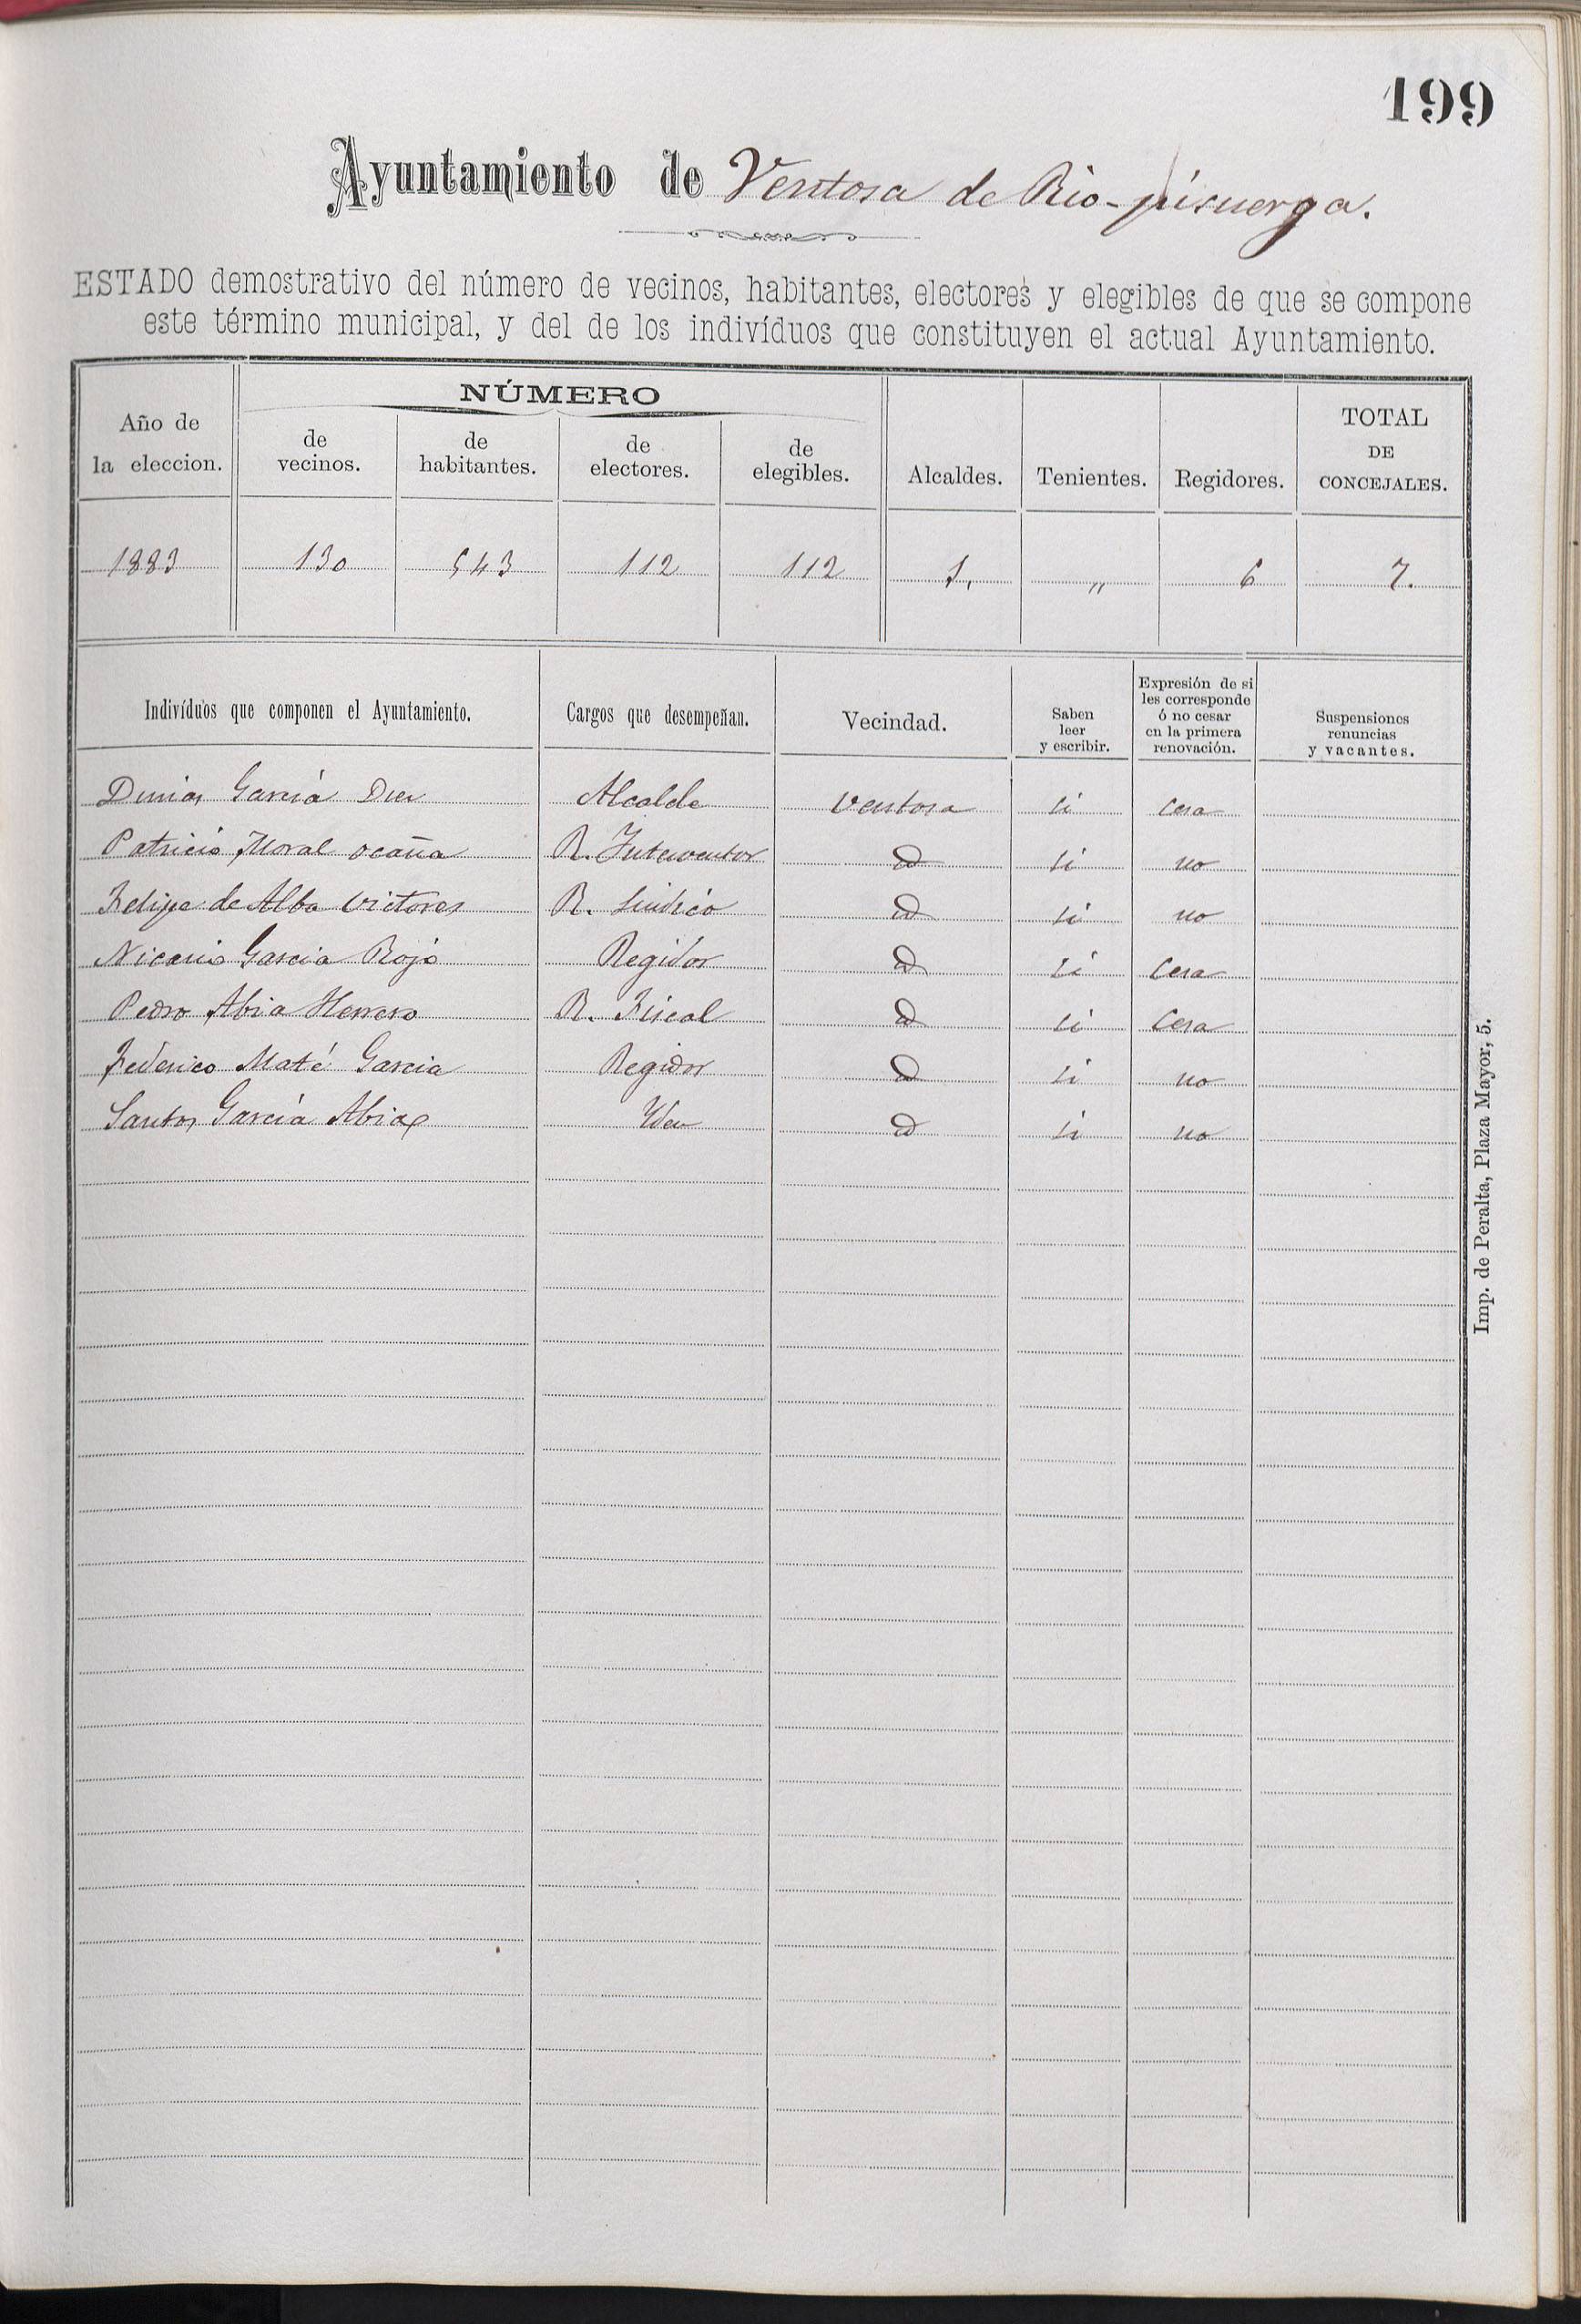 199
Ayuntamiento de Ventosa de Rio-pisuerga.
ESTADO demostrativo del número de vecinos, habitantes, electores y elegibles de que se compone
este término municipal, y del de los indivíduos que constituyen el actual Ayuntamiento.
Año de la eleccion. NÚMERO de vecinos. de habitantes. de electores. de elegibles. Alcaldes. Tenientes. Regidores. TOTAL DE CONCEJALES.
1883 130 543 112 112 1, " 6 7.
Indivíduos que componen el Ayuntamiento. Cargos que desempeñan. Vecindad. Saben leer y escribir. Expresión de si les corresponde ó no cesar en la primera renovación. Suspensiones renuncias y vacantes.
García Alcalde Ventosa si Cesa
Patricio Moral Ocaña R. Interventor id si no
Felipe de Alba Victores R. Sindico id si no
Nicanio Garcia Rojo Regidor id si Cesa
Pedro Abia Herrero R. Fiscal id si Cesa
Federico Maté Garcia Regidor id si no
Santos García Abia Yden id si no
Imp. de Peralta, Plaza Mayor, 5.